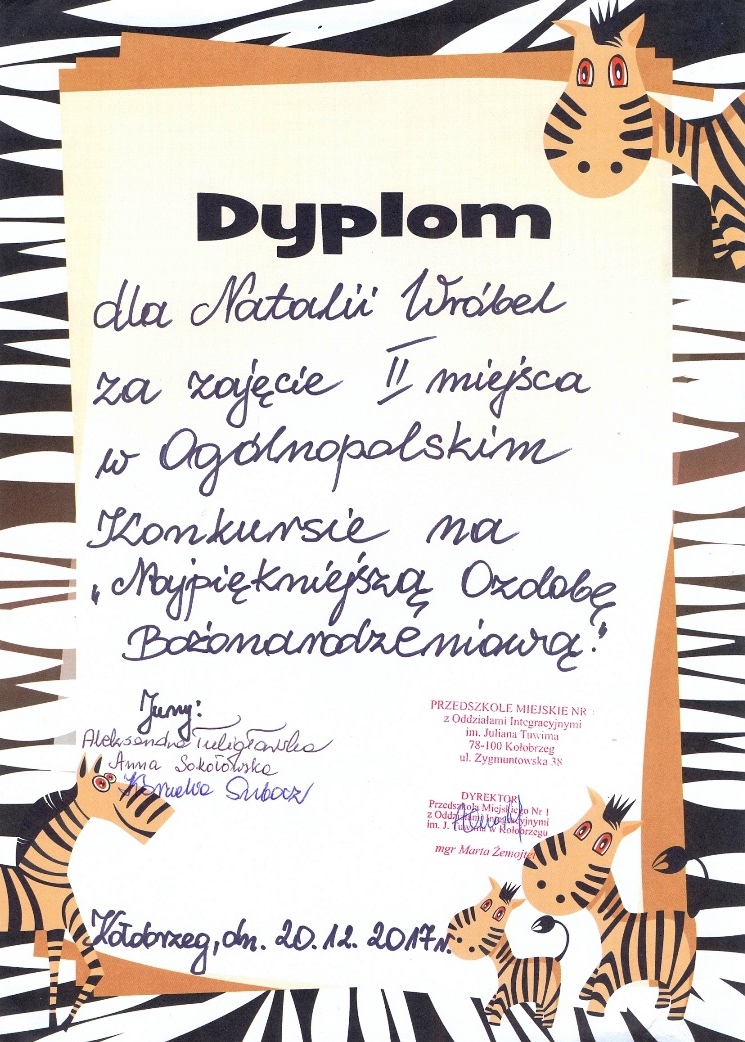 Dyplom
dla Natalii Wróbel
za zajęcie II miejsca
w Ogólnopolskim
Konkursie na
„Najpiękniejszą Ozdobę
Bożonarodzeniową."
Jury:
Aleksandra Tuligłowska
Anna Sokołowska
Kornelia
PRZEDSZKOLE MIEJSKIE NR
z Oddziałami Integracyjnymi
im. Juliana Tuwima
78-100 Kołobrzeg
ul. Zygmuntowska 38
DYREKTOR
Przedszkola Miejskiego Nr 1
z Oddziałami Integracyjnymi
im. J. Tuwima w Kołobrzegu
mgr Marta
Kołobrzeg, dn. 20.12.2017r.